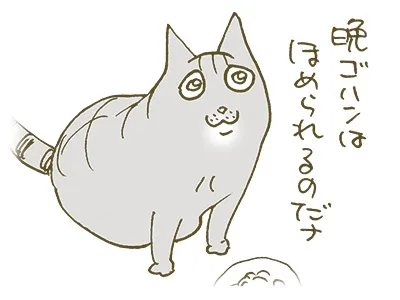 晩ゴハンは
ほめられるのだナ